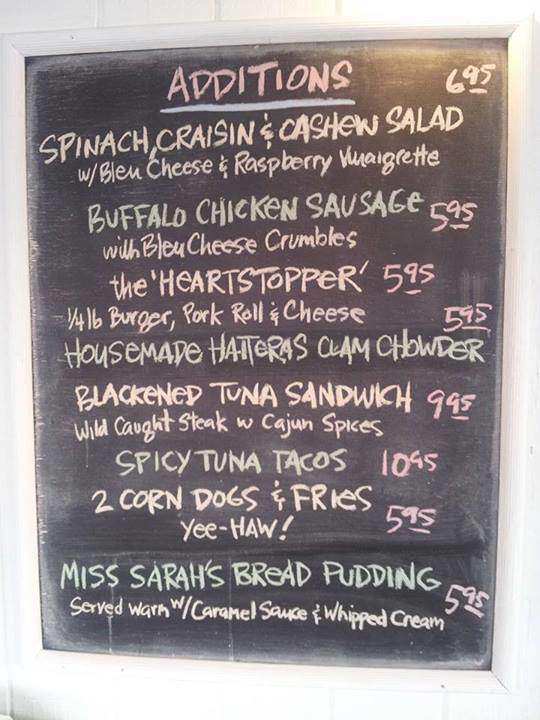 ADDITIONS 6.95
SPINACH, CRAISIN & CASHEW SALAD
w/Bleu Cheese & Raspberry Vinaigrette
BUFFALO CHICKEN SAUSAGE 5.95
with Bleu Cheese Crumbles
the 'HEARTSTOPPER' 5.95
1/4 lb Burger, Pork Roll & Cheese 5.95
HOUSEMADE HATTERAS CLAM CHOWDER
BLACKENED TUNA SANDWICH 9.95
Wild Caught Steak w Cajun Spices
SPICY TUNA TACOS 10.95
2 CORN DOGS & FRIES 5.95
Yee-HAW!
MISS SARAH'S BREAD PUDDING 5.95
Served warm w/Caramel Sauce & Whipped Cream